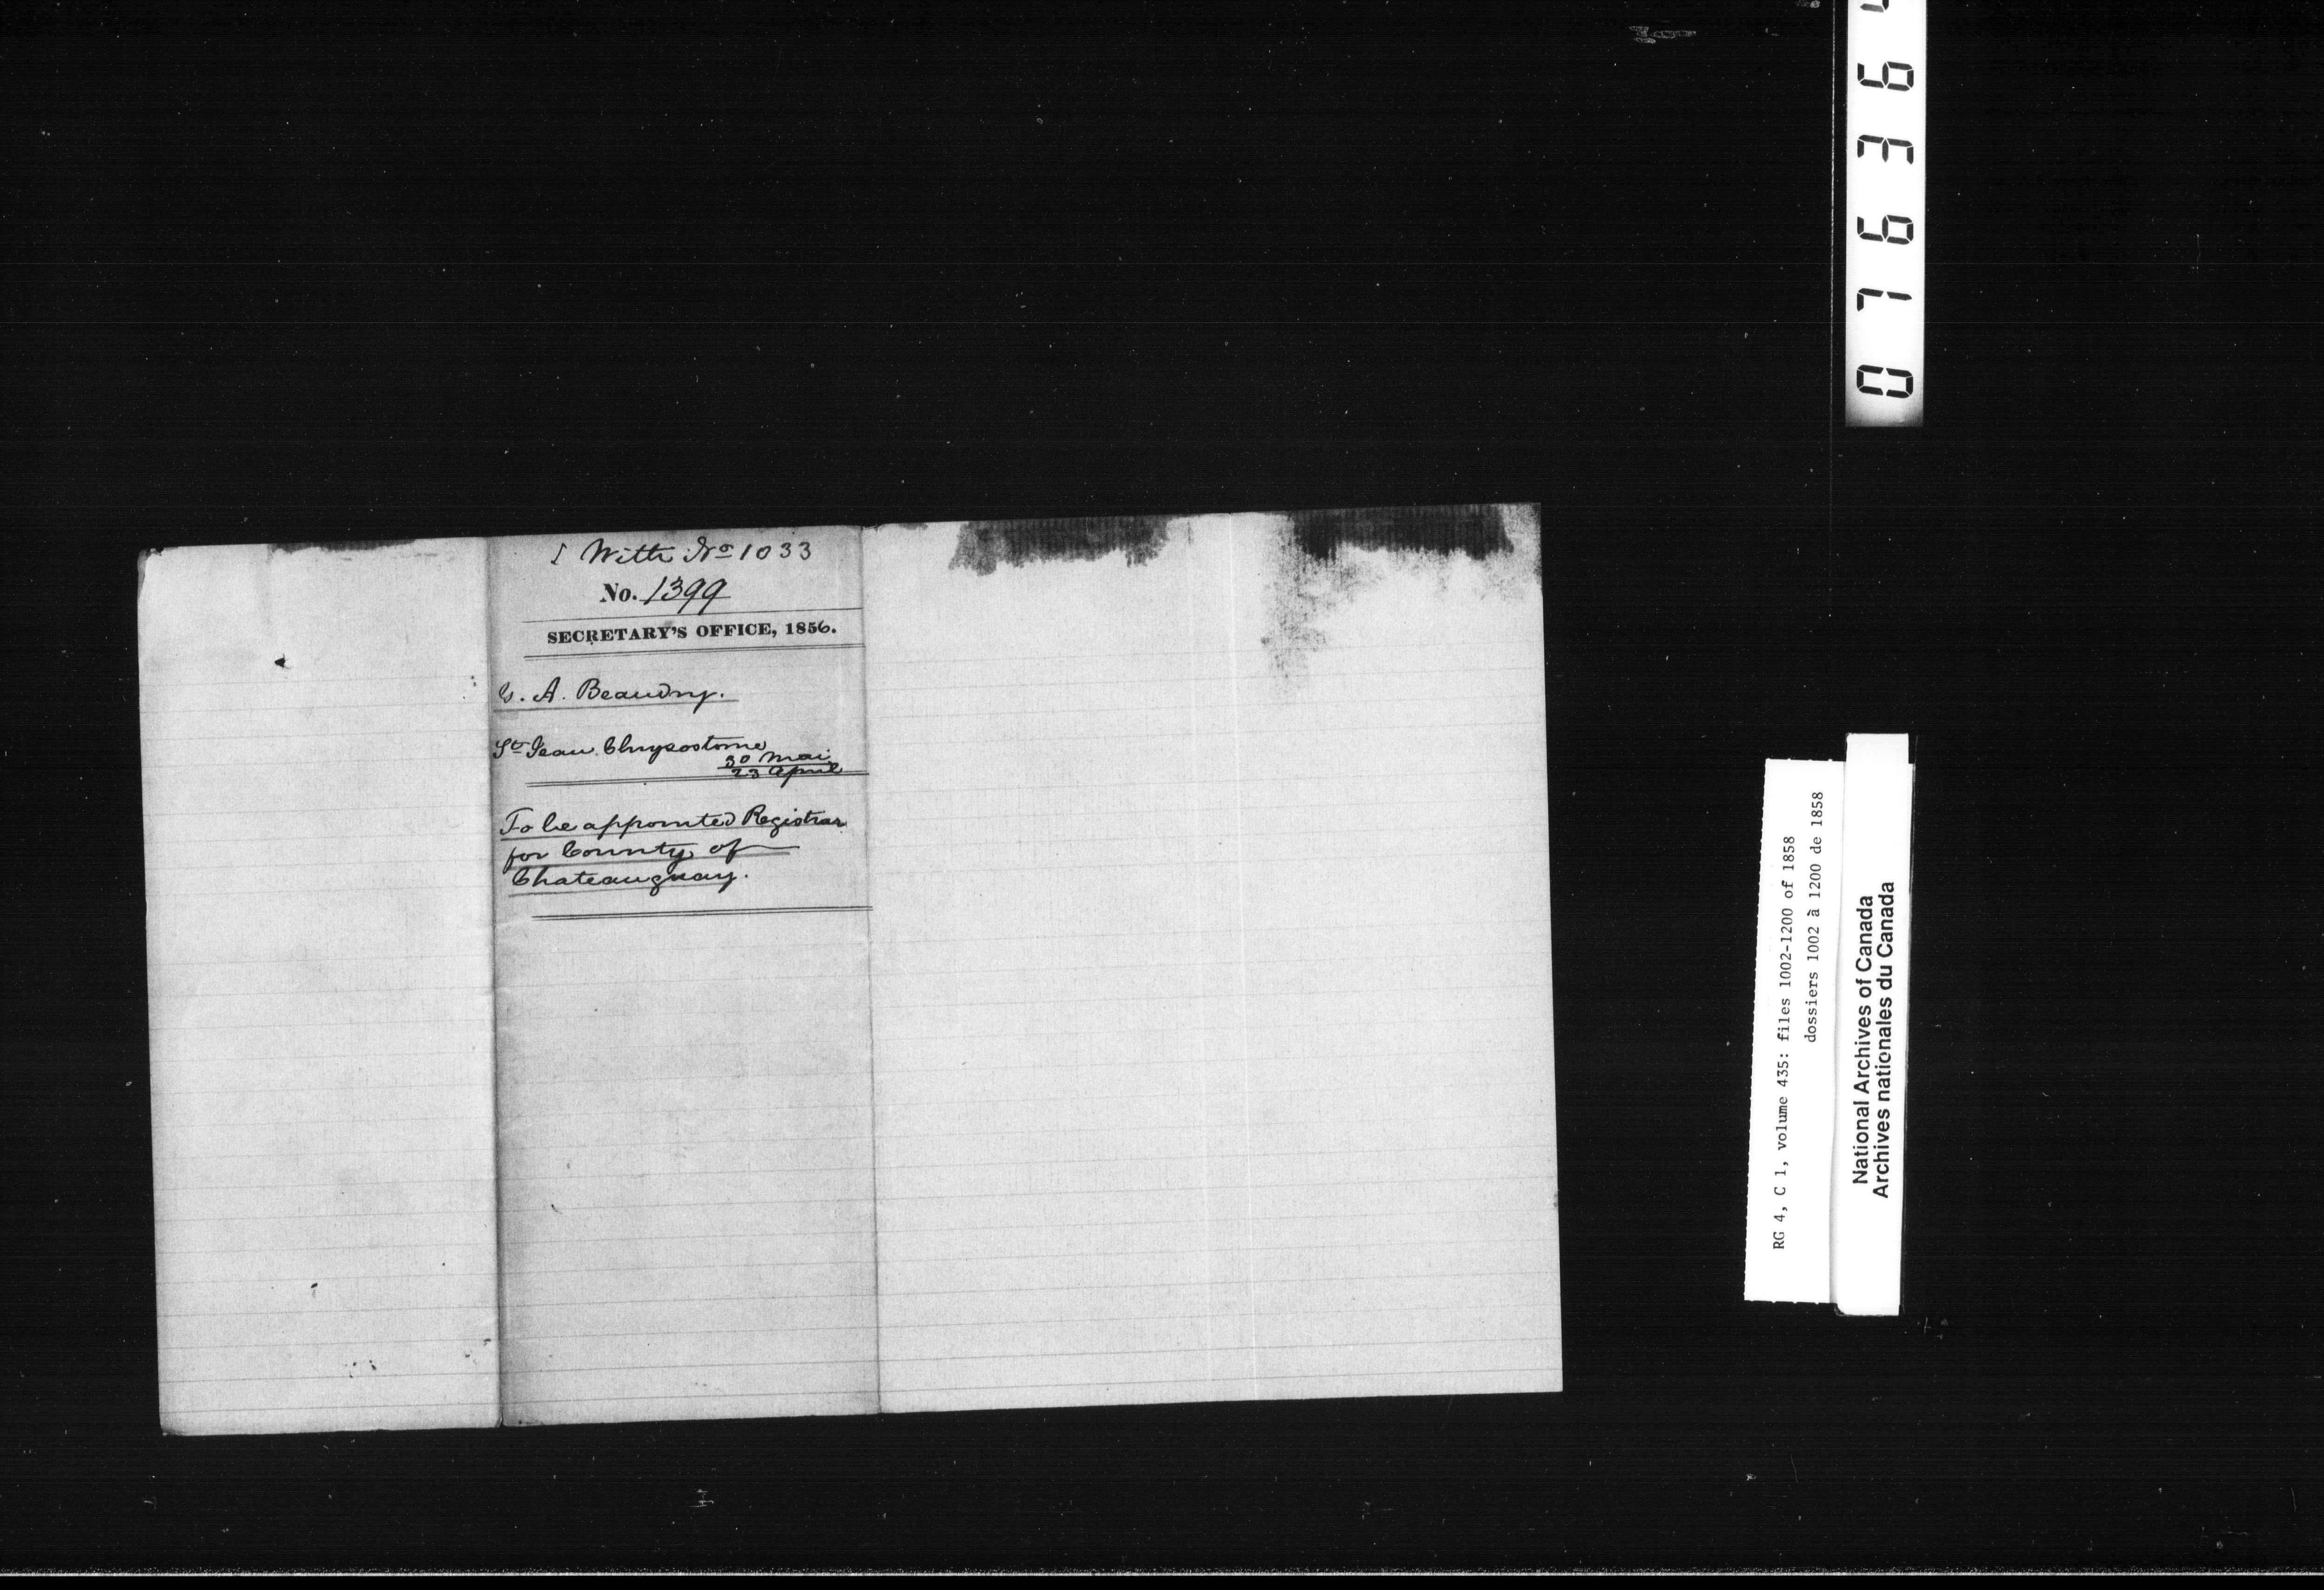 With No 1033
No. 1399
SECRETARY'S OFFICE, 1856.
A. Beaudry.
St Jean Chrysostome
30 Mai
23 April
To be appointed Registrar
for County of
Chateauguay.
0 7 6 3 6
RG 4, C 1, volume 435: files 1002-1200 of 1858
dossiers 1002 à 1200 de 1858
National Archives of Canada
Archives nationales du Canada